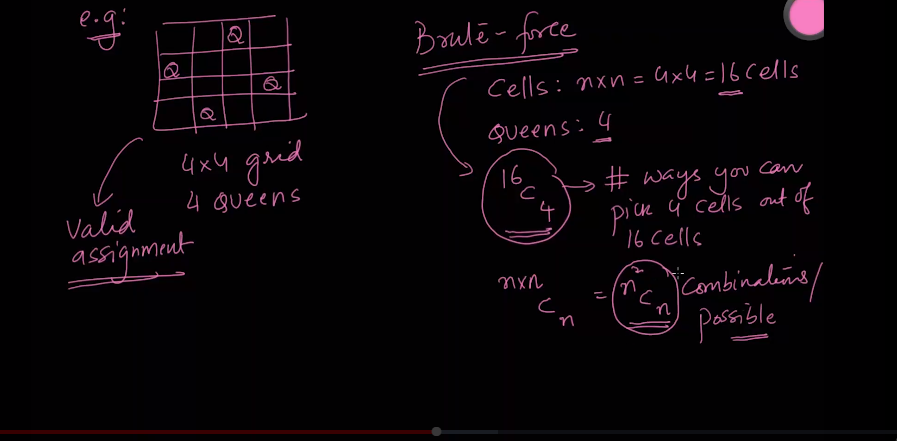 e.g:
Q
Q
Q
Q
4x4 grid
4 Queens
Valid
assignment
Brute-force
Cells: nxn = 4x4 = 16 Cells
Queens: 4
16C4 → # ways you can
pick 4 cells out of
16 cells
nxnCn = n²Cn Combinations/
possible